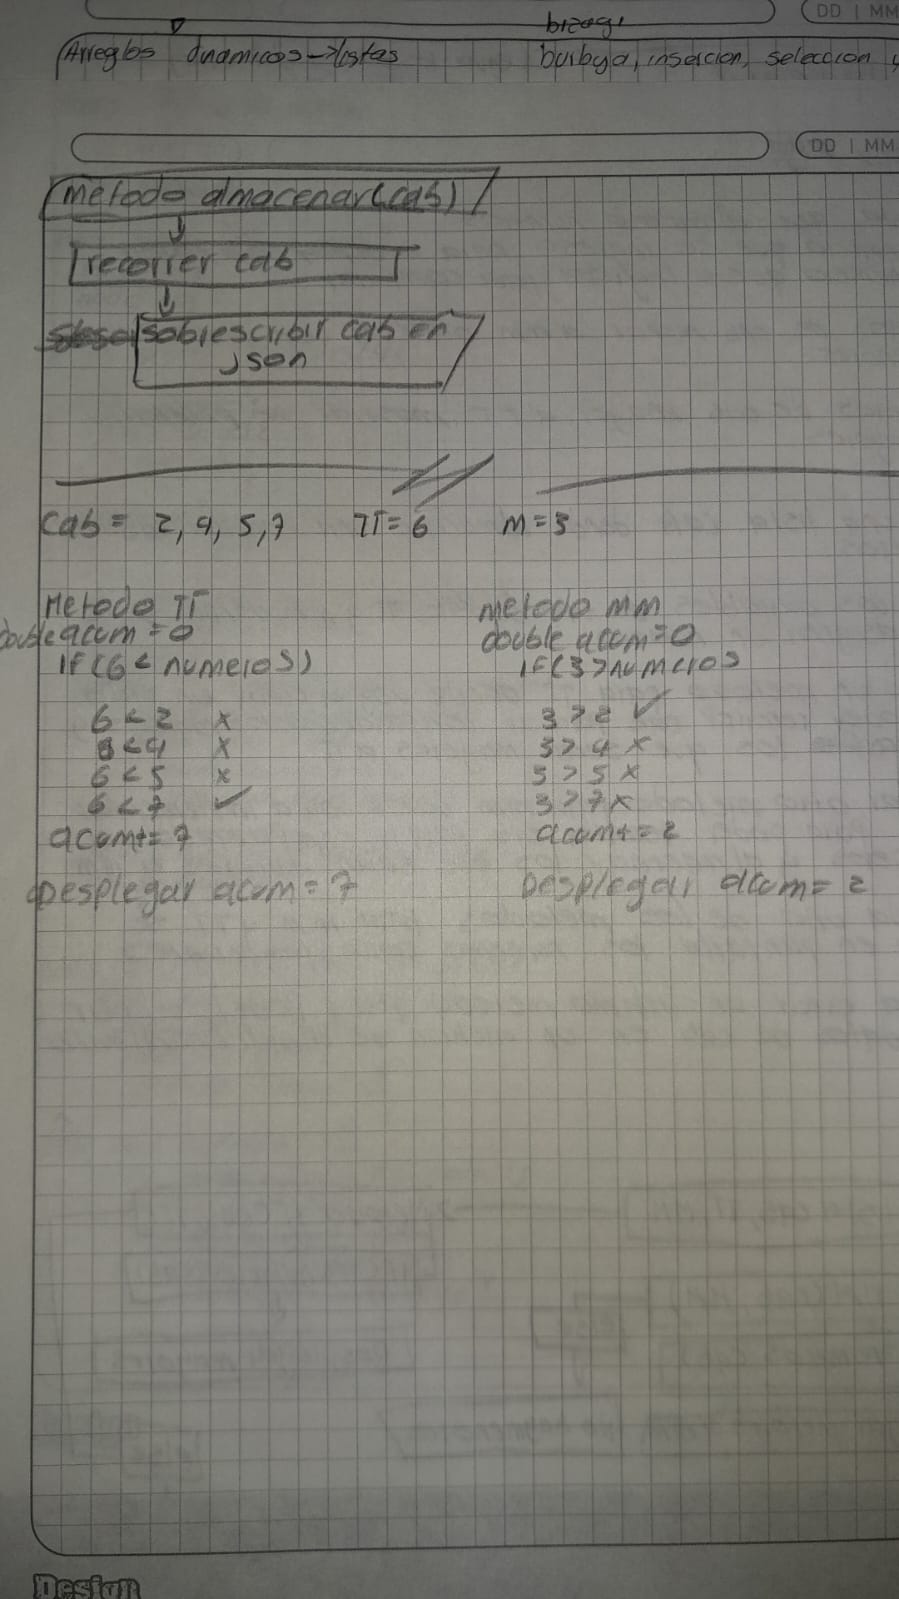 bizagi
DD | MM
Arreglos dinamicos → listas
burbuja, insercion, seleccion y
DD | MM
metodo almacenar(cab)
recorrer cab
sobrescribir cab en
json
cab = 2, 4, 5, 7 TT = 6 M = 3
Metodo TT
double acum = 0
IF(6 < numeros)
6 < 2 x
6 < 4 x
6 < 5 x
6 < 7 ✓
acum+= 7
Desplegar acum = 7
metodo MM
double acum = 0
IF(3 > numeros
3 > 2 ✓
3 > 4 x
3 > 5 x
3 > 7 x
acum+ = 2
Desplegar acum = 2
Design